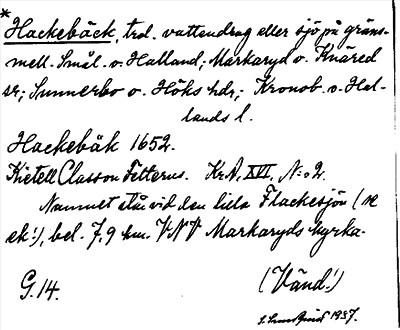 *
Hackebäck, trol. vattendrag eller sjö på gräns.
mell. Smål. o. Halland; Markaryd o. Knäred
sr; Sunnerbo o. Höks hdr; Kronob. o. Hal-
lands l.
Hackebäk 1652.
Kietell Classon Felterus. Kr. A. XVI, N:o 2.
Namnet står vid den lilla Flackesjön (se
ek!), bel. 7,9 km. VNV Markaryds kyrka.
G. 14.
(Vänd!)
1937.